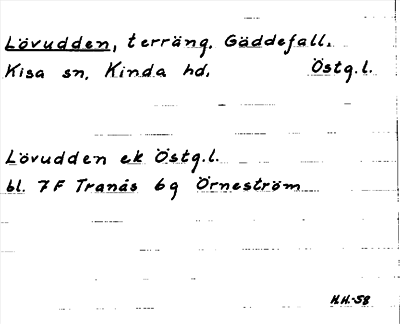 Lövudden, terräng. Gäddefall.
Kisa sn. Kinda hd. Östg.l.
Lövudden ek Östg.l.
bl. 7F Tranås 6g Örneström
H.H.-58